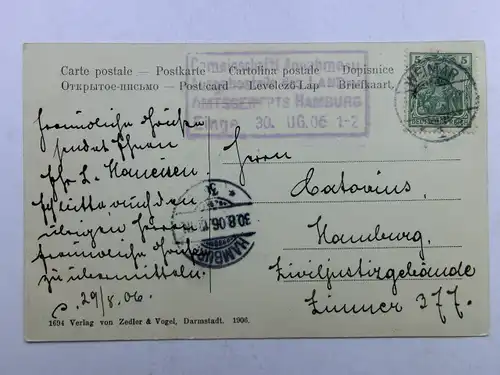 Carte postale — Postkarte — Cartolina postale — Dopisnice
Открытое-письмо — Postcard — Levelező-Lap — Briefkaart
Gemeinschaftl. Annahmen
AMTSGERICHTS HAMBURG
Einge 30. UG. 06 1-2
5 5
DEUTSCHES REICH
WEIMAR
HAMBURG
30.8.06
Freundliche Grüße
sendet Ihnen
Ihr L.
bitte auch den
übrigen Herren
freundliche Grüße
zu übermitteln.
29/8.06.
Herrn
Catovius,
Hamburg.
Ziviljustizgebäude
Zimmer 377.
1694 Verlag von Zedler & Vogel, Darmstadt. 1906.